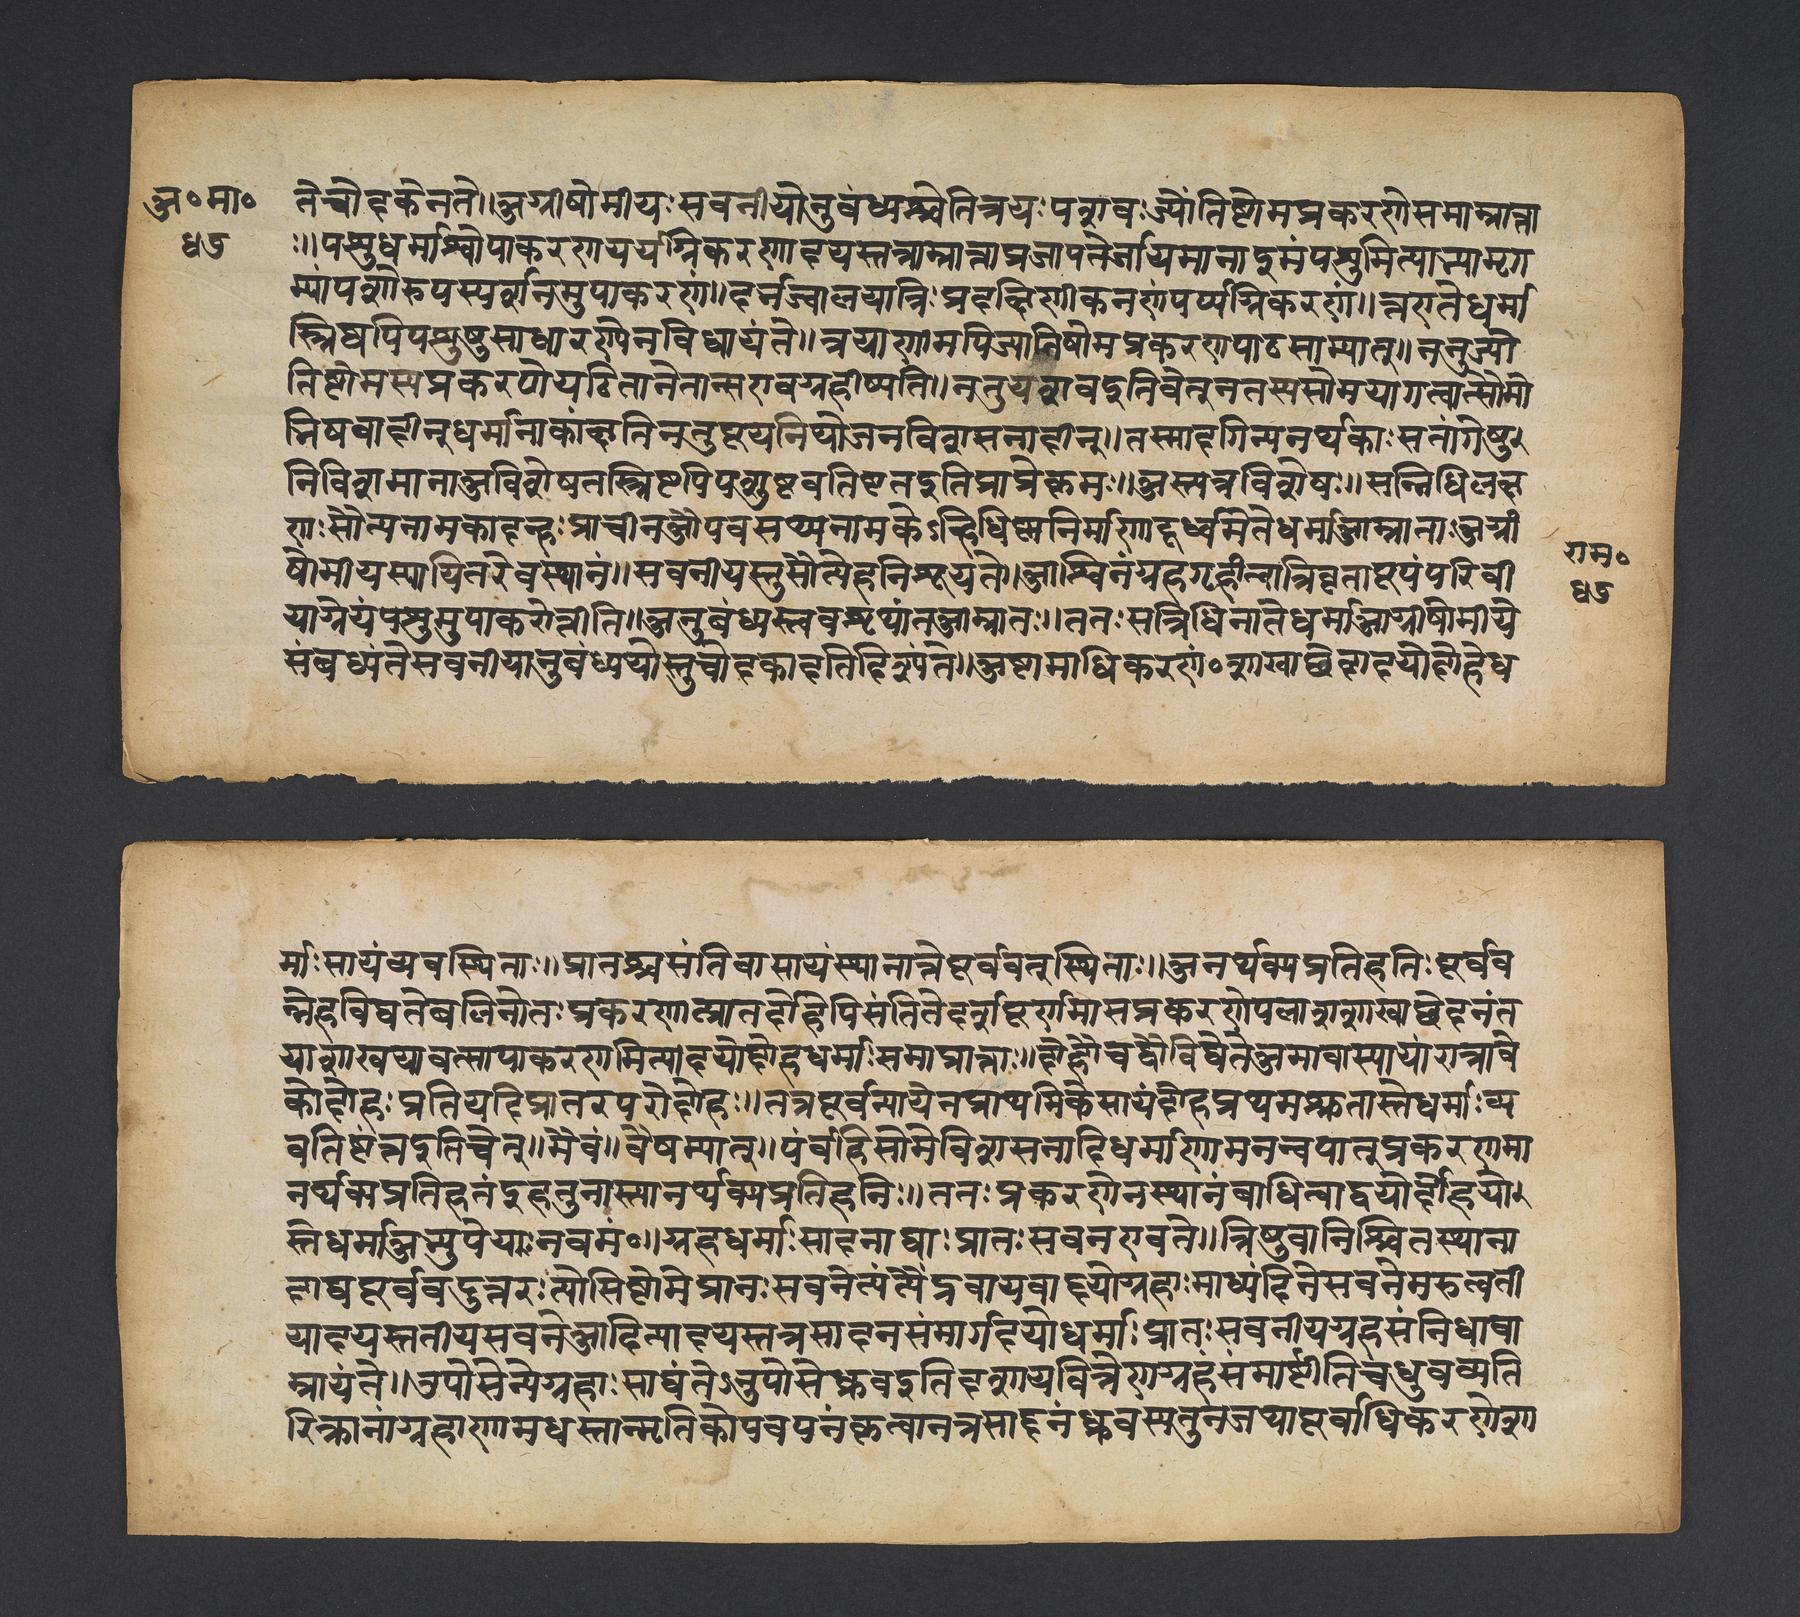 अ॰मा॰
५७
तेचोदकेनते॥अग्नीषोमीयःसवनीयोनुबंध्यश्चेतित्रयःपशवःज्योतिष्टोमप्रकरणेसमाम्नाता
ः॥पशुधर्माश्चोपाकरणपर्यग्निकरणादयस्तत्राम्नाताप्रजापतेर्जायमानाइमंपशुमित्याभ्यामृग
भ्यांपशोरुपस्पर्शनमुपाकरणं॥दर्भज्वालयात्रिःप्रदक्षिणीकरणंपर्यग्निकरणं॥तएतेधर्मा
स्त्रिष्वपिपशुषुसाधारण्येनविधीयंते॥त्रयाणामपिज्योतिषोमप्रकरणपाठसाम्यात्॥ननुज्यो
तिष्टोमस्यप्रकरणेपठितानेतान्सएवग्रहीष्यति॥ननुपशवइतिचेत्नतस्यसोमयागत्वात्सोमो
भिषवादीन्धर्मानाकांक्षतिनतुयूपनियोजनविशसनादीन्॥तस्मादगिन्यनर्थकाःसतांगेषु
निविशमानाअविशेषतस्त्रिष्टपिपशुष्ववतिष्टतइतिप्राप्तेब्रूमः॥अस्त्यत्रविशेषः॥सन्निधिलक्ष
णःसौत्यनामकादन्हःप्राचीनऔपवसथ्यनामकेऽन्हिधिष्ण्यनिर्माणादूर्ध्वमेतेधर्माआम्नाताःअग्नी
षोमीयस्यापितदेवस्थानं॥सवनीयस्तुसौत्येहनिश्रूयते॥आश्विनंग्रहंगृहीत्वात्रिवृतायूपंपरिवी
याग्नेयंपशुमुपाकरोतीति॥अनुबंध्यस्त्ववभृथांतआम्नातः॥ततःसन्निधिनातेधर्माआग्नीषोमीये
संबध्यंतेसवनीयानुबंध्ययोस्तुचोदकादतिदिश्यंते॥अष्टमाधिकरणं॰शाखाछेदाद्दयोदोहेध
राम॰
५७
र्माःसायंव्यवस्थिताः॥प्रातश्चसंतिवासायंस्थानात्तेपूर्ववत्स्थिताः॥अनर्थक्यप्रतिहतिःपूर्वव
न्नेहविद्यतेबलिनोतःप्रकरणात्प्रातर्दोहेपिसंतितेदर्शपूर्णमासप्रकरणेपलाशशाखाछेदनंत
याशाखयावत्सापाकरणमित्यादयोदोहधर्माःसमाम्नाताः॥दोहौचद्वौविद्येतेअमावास्यायांरात्रावे
कोदोहःप्रतिपदिप्रातरपरोदोहः॥तत्रपूर्वन्यायेनप्राथमिकेसायंदोहेप्रथमश्रुतास्तेधर्माःव्य
वतिष्टंतइतिचेत्॥मैवं॥वैषम्यात्॥पूर्वहिसोमेविशसनादिधर्माणामनन्वयात्प्रकरणमा
नर्थक्यप्रतिहतंइहतुनास्त्यानर्थक्यप्रतिहतिः॥ततःप्रकरणेनस्थानंबाधित्वाद्वयोर्दोहयो
स्तेधर्माअभ्युपेयाःनवमं॰॥ग्रहधर्माःसादनाद्याःप्रातःसवनएवते॥त्रिष्टुवानिश्चितस्थाना
दाद्यपूर्ववदुत्तरःत्योतिष्टोमेप्रातःसवनेत्यंत्यैंद्रवायवादयोग्रहाःमाध्यंदिनेसवनेमरुत्वती
यादयस्तृतीयसवनेआदित्यादयस्तत्रसादनसंमार्गादयोधर्माःप्रातःसवनीयग्रहसंनिधावा
म्नायंते॥उपोप्तेन्येग्रहाःसाद्यंतेऽनुपोप्तेध्रुवइतिदशापवित्रेणग्रहंसंमार्ष्टीतिचध्रुवव्यति
रिक्तानांग्रहाणामधस्तान्मृत्तिकोपवपनंकृत्वातत्रसादनंध्रुवस्यतुनजथापूर्वाधिकरणेशा